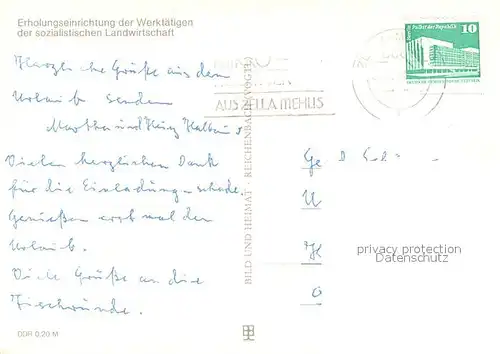 Erholungseinrichtung der Werktätigen
der sozialistischen Landwirtschaft
Herzliche Grüße aus dem
Urlaub senden
Martha und Heinz
Vielen herzlichen Dank
für die Einladung schade.
Genießen erst mal den
Urlaub.
Viele Grüße an die
DDR 0,20 M
BILD UND HEIMAT · REICHENBACH (VOGTL)
AUS ZELLA MEHLIS
Palast der Republik
10
privacy protection
Datenschutz